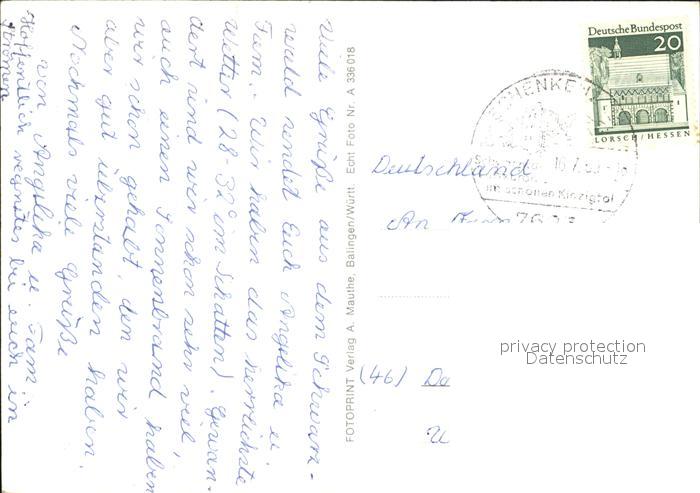 Viele Grüße aus dem Schwarz-
wald sendet Euch Angelika u.
Fam. Wir haben das herrlichste
Wetter (28-32° im Schatten). Gewan-
dert sind wir schon sehr viel,
auch einen Sonnenbrand haben
wir schon gehabt, den wir
aber gut überstanden haben.
Nochmals viele Grüße
von Angelika u. Fam.
Hoffentlich regnet es bei euch in
Strömen
FOTOPRINT Verlag A. Mauthe, Balingen/Württ. Echt Foto Nr. A 336 018
Deutsche Bundespost
20
LORSCH/HESSEN
SCHENKE
16.7.
im schönen Kinzigtal
Deutschland
An Fam
(46) Do
U
privacy protection
Datenschutz